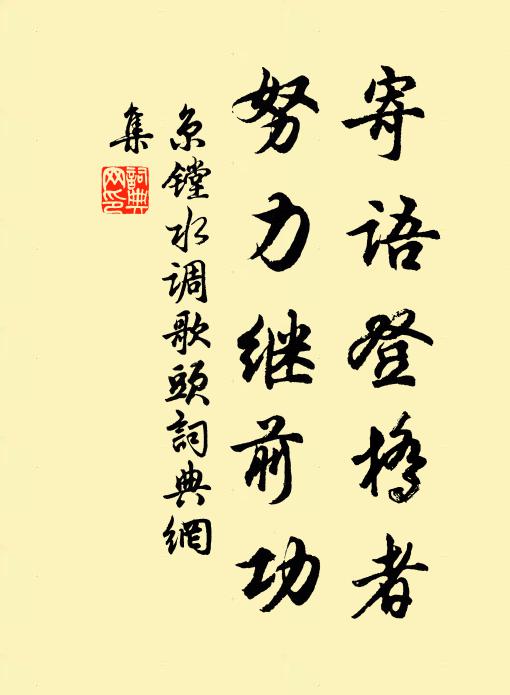 寄语登桥者
努力继前功
京镗水调歌头词典網
集
詞典
网印